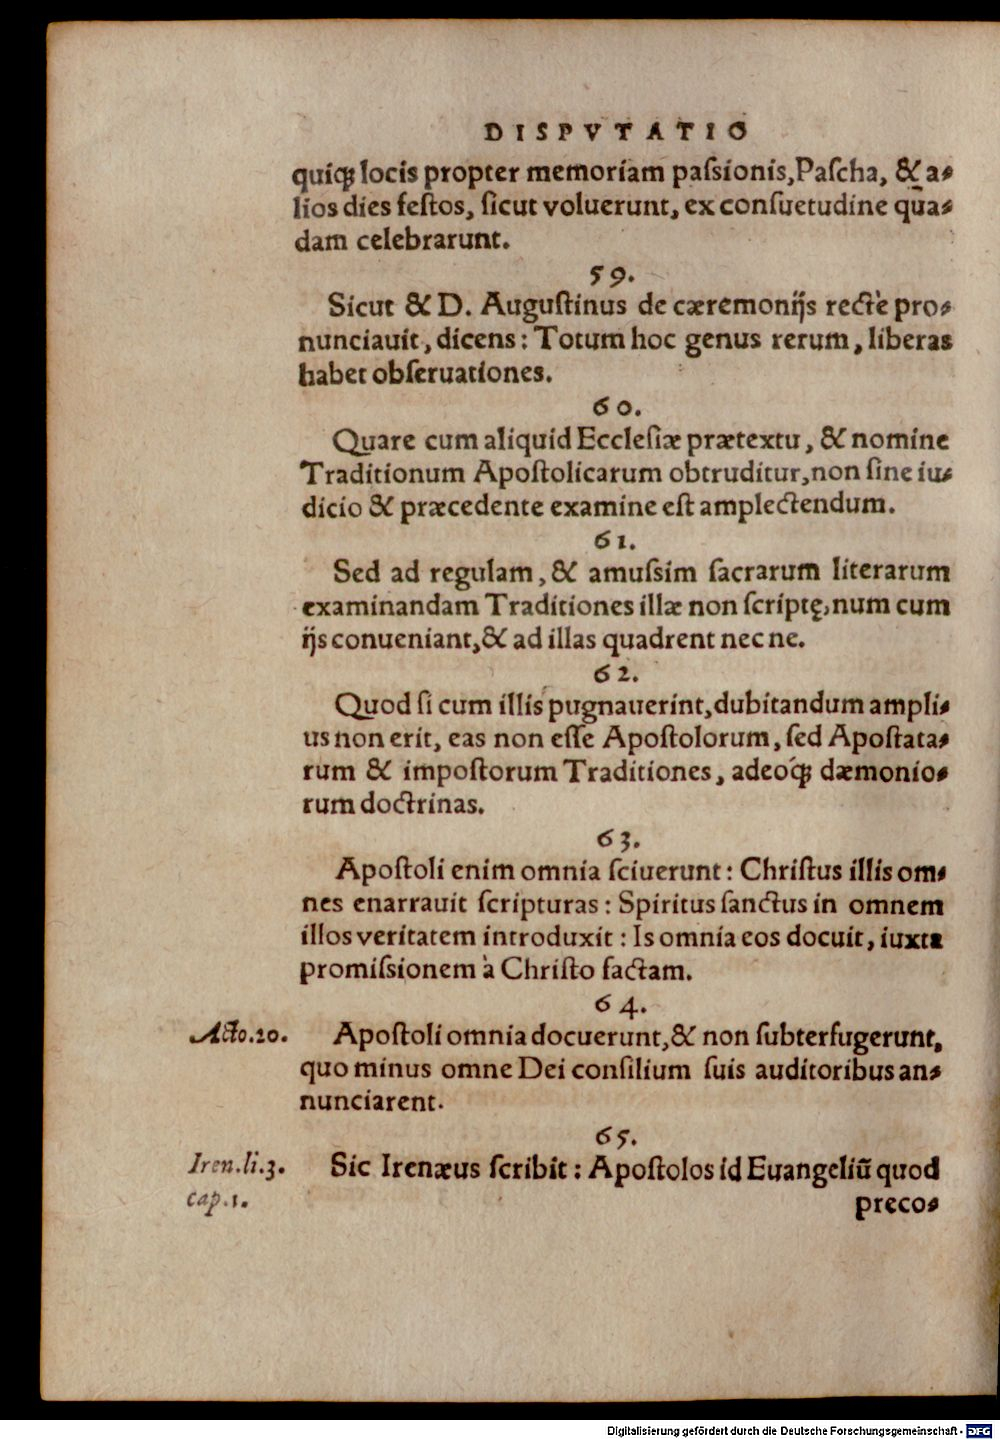 DISPVTATIO
quiqꝫ locis propter memoriam paſsionis, Paſcha, & a⸗
lios dies feſtos, ſicut voluerunt, ex conſuetudine qua⸗
dam celebrarunt.
59.
Sicut & D. Auguſtinus de cæremonijs rectè pro⸗
nunciauit, dicens: Totum hoc genus rerum, liberas
habet obſeruationes.
60.
Quare cum aliquid Eccleſiæ prætextu, & nomine
Traditionum Apoſtolicarum obtruditur, non ſine iu⸗
dicio & præcedente examine eſt amplectendum.
61.
Sed ad regulam, & amuſsim ſacrarum literarum
examinandam Traditiones illæ non ſcriptę, num cum
ijs conueniant, & ad illas quadrent nec ne.
62.
Quod ſi cum illis pugnauerint, dubitandum ampli⸗
us non erit, eas non eſſe Apoſtolorum, ſed Apoſtata⸗
rum & impoſtorum Traditiones, adeóqꝫ dæmonio⸗
rum doctrinas.
63.
Apoſtoli enim omnia ſciuerunt: Chriſtus illis om⸗
nes enarrauit ſcripturas: Spiritus ſanctus in omnem
illos veritatem introduxit: Is omnia eos docuit, iuxta
promiſsionem à Chriſto factam.
64.
Acto.20. Apoſtoli omnia docuerunt, & non ſubterfugerunt,
quo minus omne Dei conſilium ſuis auditoribus an⸗
nunciarent.
65.
Iren.li.3. Sic Irenæus ſcribit: Apoſtolos id Euangeliũ quod
cap.1. preco⸗
Digitalisierung gefördert durch die Deutsche Forschungsgemeinschaft - DFG